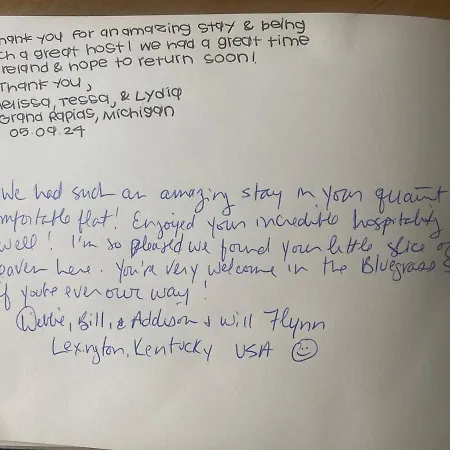 hank you for an amazing stay & being
ch a great host! we had a great time
reland & hope to return soon!
Thank you,
elissa, Tessa, & Lydia
Grand Rapids, Michigan
05.09.24
We had such an amazing stay in your quaint
mfortable flat! Enjoyed your incredible hospitality
well! I'm so pleased we found your little slice o
eaven here. You're very welcome in the Bluegrass S
f you're ever our way!
Bill, & Addison & Will Flynn
Lexington, Kentucky USA